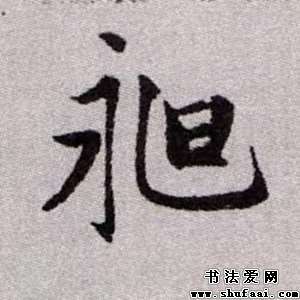 昶
书法爱网
www.shufaai.com